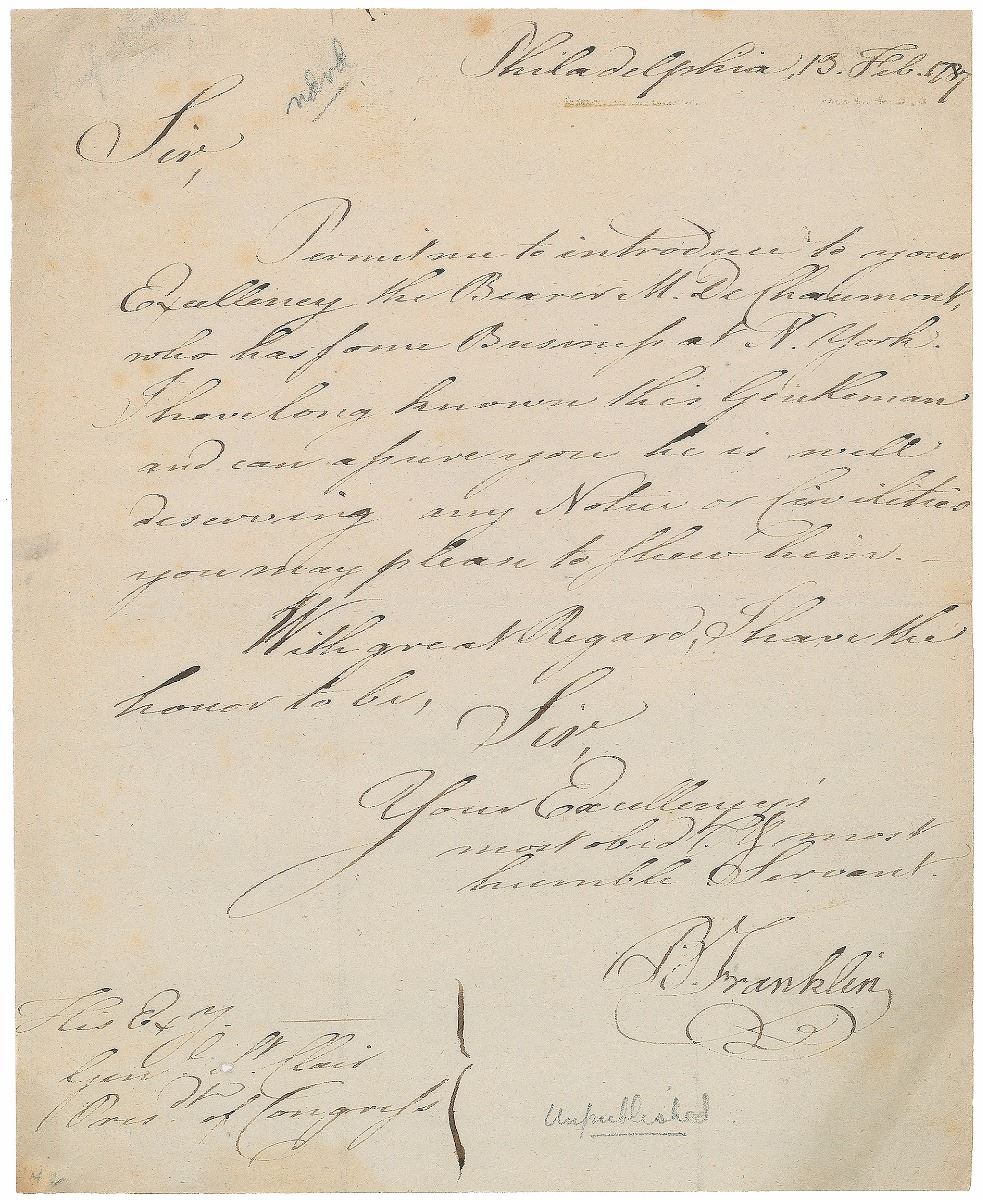 Philadelphia, 13. Feb. 1787
Sir,
Permit me to introduce to your
Excellency the Bearer M. De Chaumont,
who has some Business at N. York.
I have long known this Gentleman
and can assure you he is well
deserving any Notice or Civilities
you may please to shew him.
With great Regard, I have the
honor to be,
Sir,
Your Excellency's
most obedt. & most
humble Servant.
B. Franklin
His Excy.
Genl. St. Clair
Presdt. of Congress
Unpublished